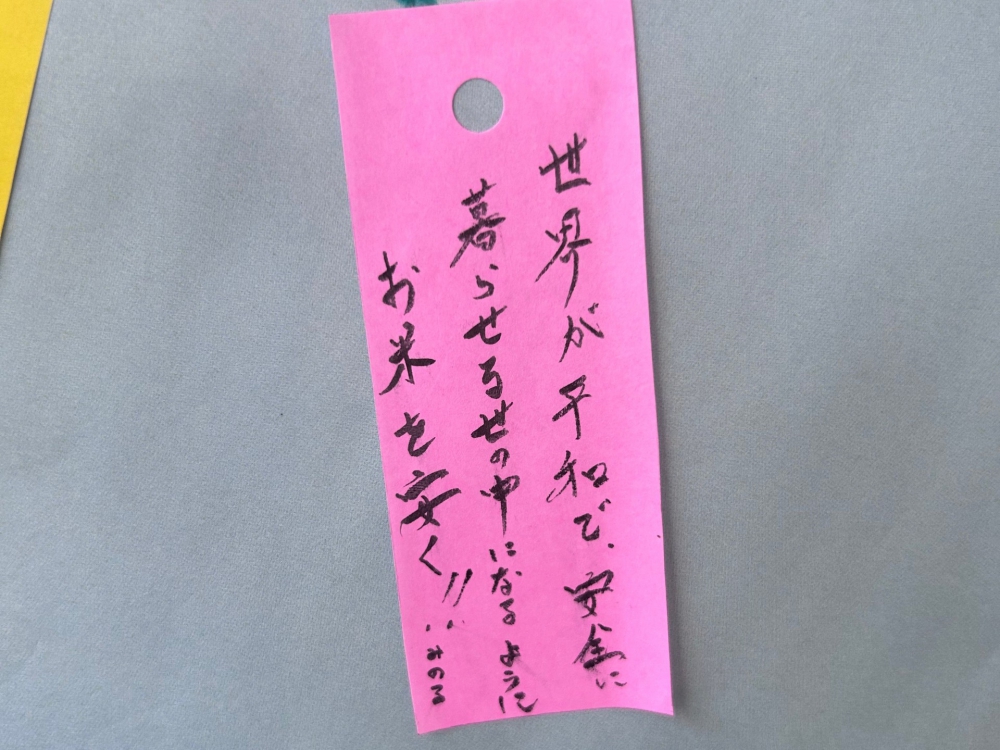 世界が平和で、安全に
暮らせる世の中になるように
お米を安く!!
みのる